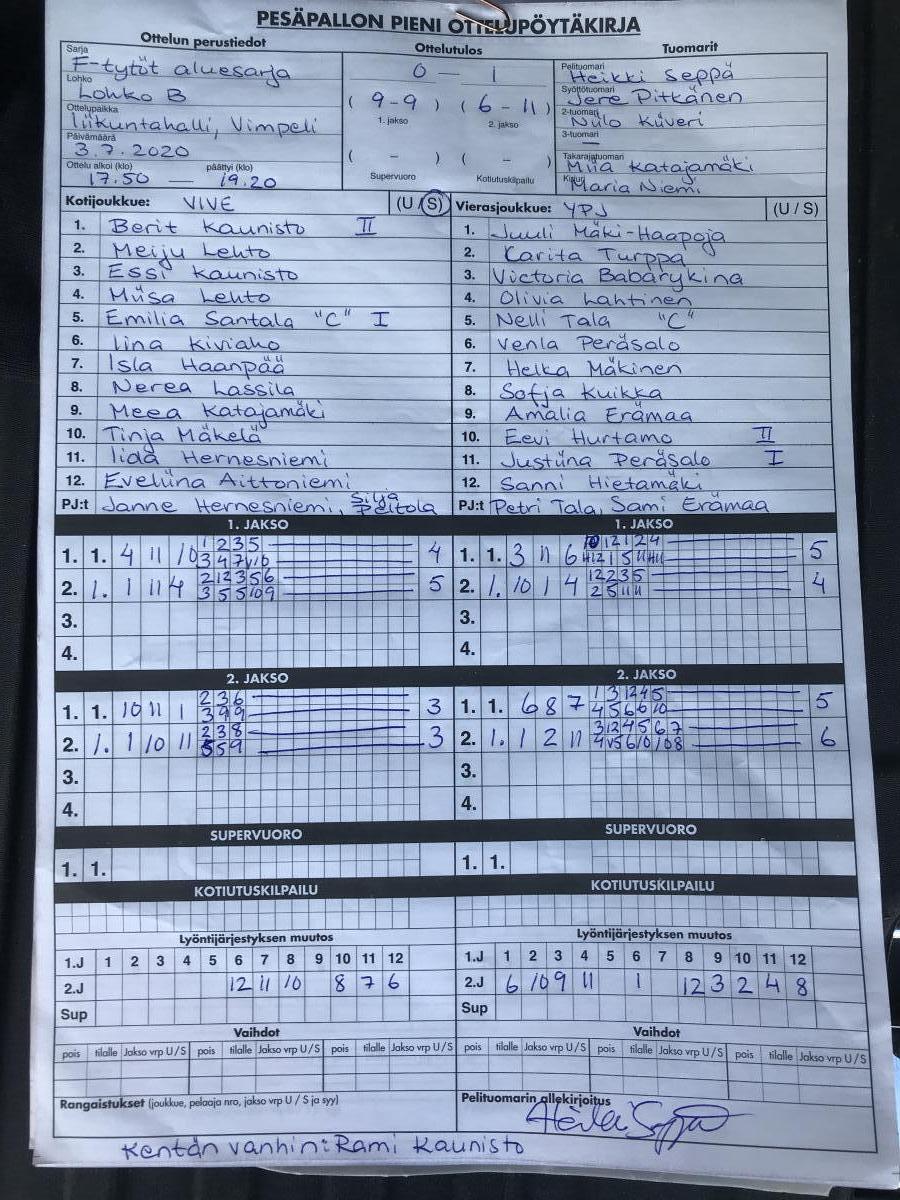 PESÄPALLON PIENI OTTELUPÖYTÄKIRJA
Ottelun perustiedot
Ottelutulos
Tuomarit
Sarja
F-tytöt aluesarja
Lohko
Lohko B
Ottelupaikka
liikuntahalli, Vimpeli
Päivämäärä
3.7.2020
Ottelu alkoi (klo) päättyi (klo)
17.50 — 19.20
0 — 1
( 9-9 ) ( 6-11 )
1. jakso 2. jakso
( - ) ( - )
Supervuoro Kotiutuskilpailu
Pelituomari
Heikki Seppä
Syöttötuomari
Jere Pitkänen
2-tuomari
Niilo Kiiveri
3-tuomari
—
Takarajatuomari
Miia Katajamäki
Kirjuri
Maria Niemi
Kotijoukkue: VIVE (U / S)
1. Berit Kaunisto II
2. Meiju Lehto
3. Essi Kaunisto
4. Miisa Lehto
5. Emilia Santala "C" I
6. Iina Kiviaho
7. Isla Haanpää
8. Nerea Lassila
9. Meea Katajamäki
10. Tinja Mäkelä
11. Iida Hernesniemi
12. Eveliina Aittoniemi
PJ:t Janne Hernesniemi, Silja Peltola
Vierasjoukkue: YPJ (U / S)
1. Juuli Mäki-Haapoja
2. Karita Turppa
3. Victoria Babarykina
4. Olivia Lahtinen
5. Nelli Tala "C"
6. Venla Peräsalo
7. Helka Mäkinen
8. Sofja Kuikka
9. Amalia Erämaa
10. Eevi Hurtamo II
11. Justiina Peräsalo I
12. Sanni Hietamäki
PJ:t Petri Tala, Sami Erämaa
1. JAKSO
1. 1. 4 11 10 4
2. 1. 1 11 4 5
3.
4.
1. JAKSO
1. 1. 3 11 6 5
2. 1. 10 1 4 4
3.
4.
2. JAKSO
1. 1. 10 11 1 2 3 6 3
3 9 9
2. 1. 1 10 11 2 3 8 3
5 5 9
3.
4.
2. JAKSO
1. 1. 6 8 7 1 3 12 4 5 5
4 5 6 6 10
2. 1. 1 2 11 6
3.
4.
SUPERVUORO
1. 1.
SUPERVUORO
1. 1.
KOTIUTUSKILPAILU
KOTIUTUSKILPAILU
Lyöntijärjestyksen muutos
1.J 1 2 3 4 5 6 7 8 9 10 11 12
2.J 12 11 10 8 7 6
Sup
Lyöntijärjestyksen muutos
1.J 1 2 3 4 5 6 7 8 9 10 11 12
2.J 6 10 9 11 1 12 3 2 4 8
Sup
Vaihdot
pois tilalle Jakso vrp U / S pois tilalle Jakso vrp U / S pois tilalle Jakso vrp U / S
Vaihdot
pois tilalle Jakso vrp U / S pois tilalle Jakso vrp U / S pois tilalle Jakso vrp U / S
Rangaistukset (joukkue, pelaaja nro, jakso vrp U / S ja syy)
Pelituomarin allekirjoitus
Kentän vanhin: Rami Kaunisto